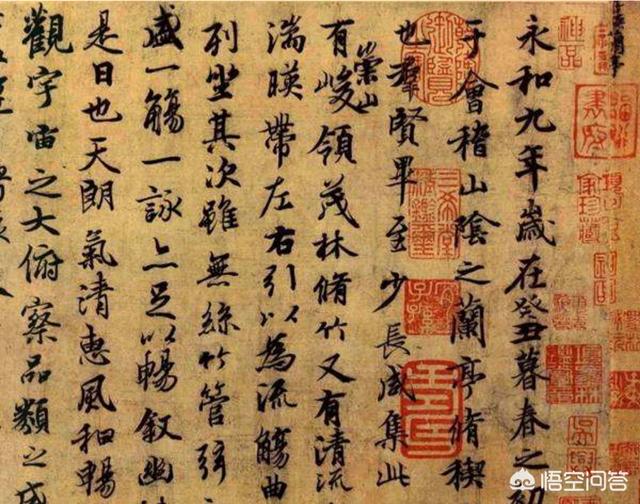 永和九年歲在癸丑暮春之初
于會稽山陰之蘭亭脩稧
也羣賢畢至少長咸集此
有崇山峻領茂林脩竹又有清流
湍暎帶左右引以為流觴曲
列坐其次雖無絲竹管弦
盛一觴一詠亦足以暢叙幽情
是日也天朗氣清惠風和暢
觀宇宙之大俯察品類之盛
神品
三希堂精鑑璽
宜子孫
悟空问答